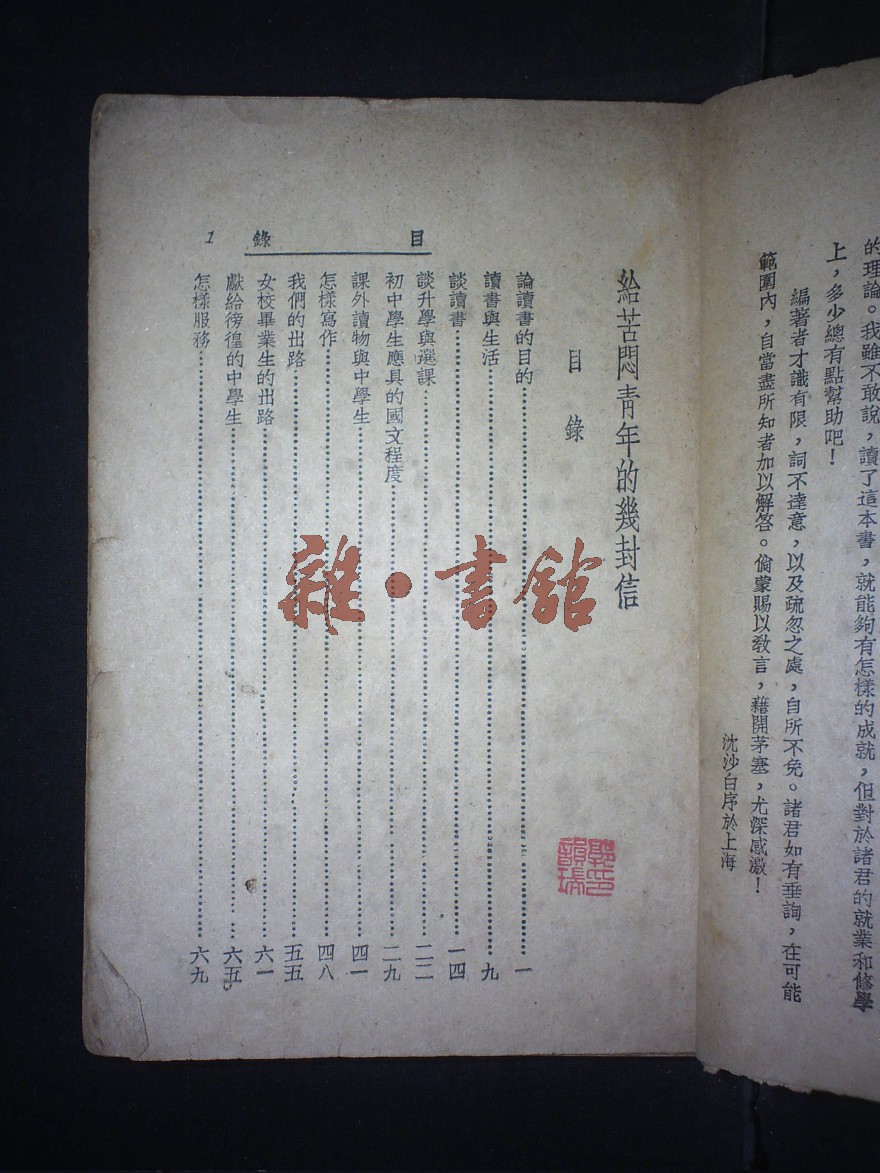 的理論。我雖不敢說，讀了這本書，就能夠有怎樣的成就，但對於諸君的就業和修學
上，多少總有點幫助吧！
編著者才識有限，詞不達意，以及疏忽之處，自所不免。諸君如有垂詢，在可能
範圍內，自當盡所知者加以解答。倘蒙賜以教言，藉開茅塞，尤深感激！
沈沙白序於上海
目錄 1
給苦悶青年的幾封信
目錄
論讀書的目的……一
讀書與生活……九
談讀書……一四
談升學與選課……二二
初中學生應具的國文程度……二九
課外讀物與中學生……四一
怎樣寫作……四八
我們的出路……五五
女校畢業生的出路……六一
獻給徬徨的中學生……六五
怎樣服務……六九
雜·書館